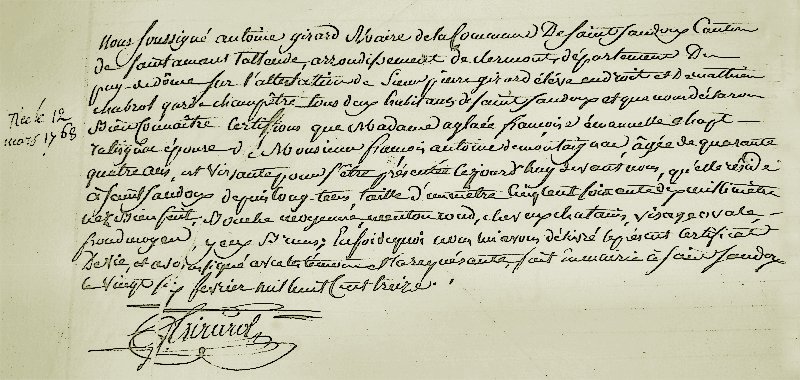 Nous soussigné antoine girard Maire de la Commune De saint sandoux Canton
de saint amant tallande, arrondissement de clermont, département Du
puy-de-dôme sur l'attestation de Sieur pierre girard élève en droit et de mathieu
chabrol garde champêtre tous deux habitans de saint sandoux et que nous déclarons
Bien Connaître certifions que Madame aglaée françoise émanuelle chapt
rastignac épouse de Monsieur françois antoine de montaignac, âgée de quarante
quatre ans, est vivante pour s'être présentée le jourd'huy devant nous, qu'elle réside
à saint sandoux depuis long-tems, taille d'un mètre Cinq Cent soixante dix millimètre
nez Bien fait, Bouche moyenne, menton rond, cheveux chatain, visage ovale,
front moyen, yeux Bruns; En foi de quoi nous lui avons délivré le présent certificat
De vie, et a signé avec les témoins fait en mairie à saint sandoux
le vingt six fevrier mil huit Cent treize.
Née le 12
mars 1768
Girard